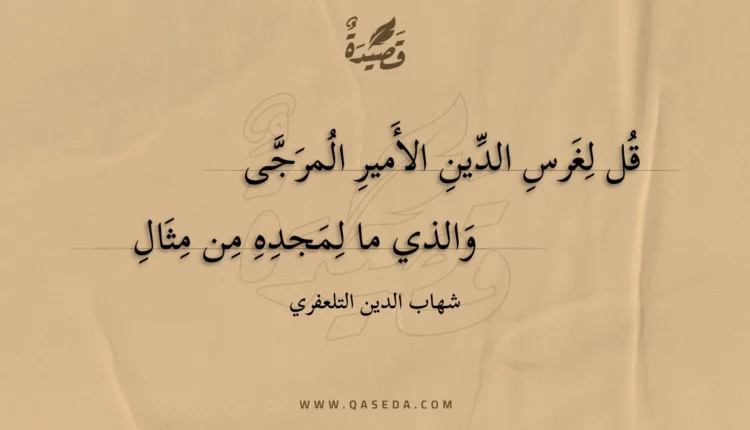 قَصِيدَةٌ
قُل لِغَرسِ الدِّينِ الأَميرِ الُمرَجَّى
وَالذي ما لِمَجدِهِ مِن مِثَالِ
شهاب الدين التلعفري
WWW.QASEDA.COM